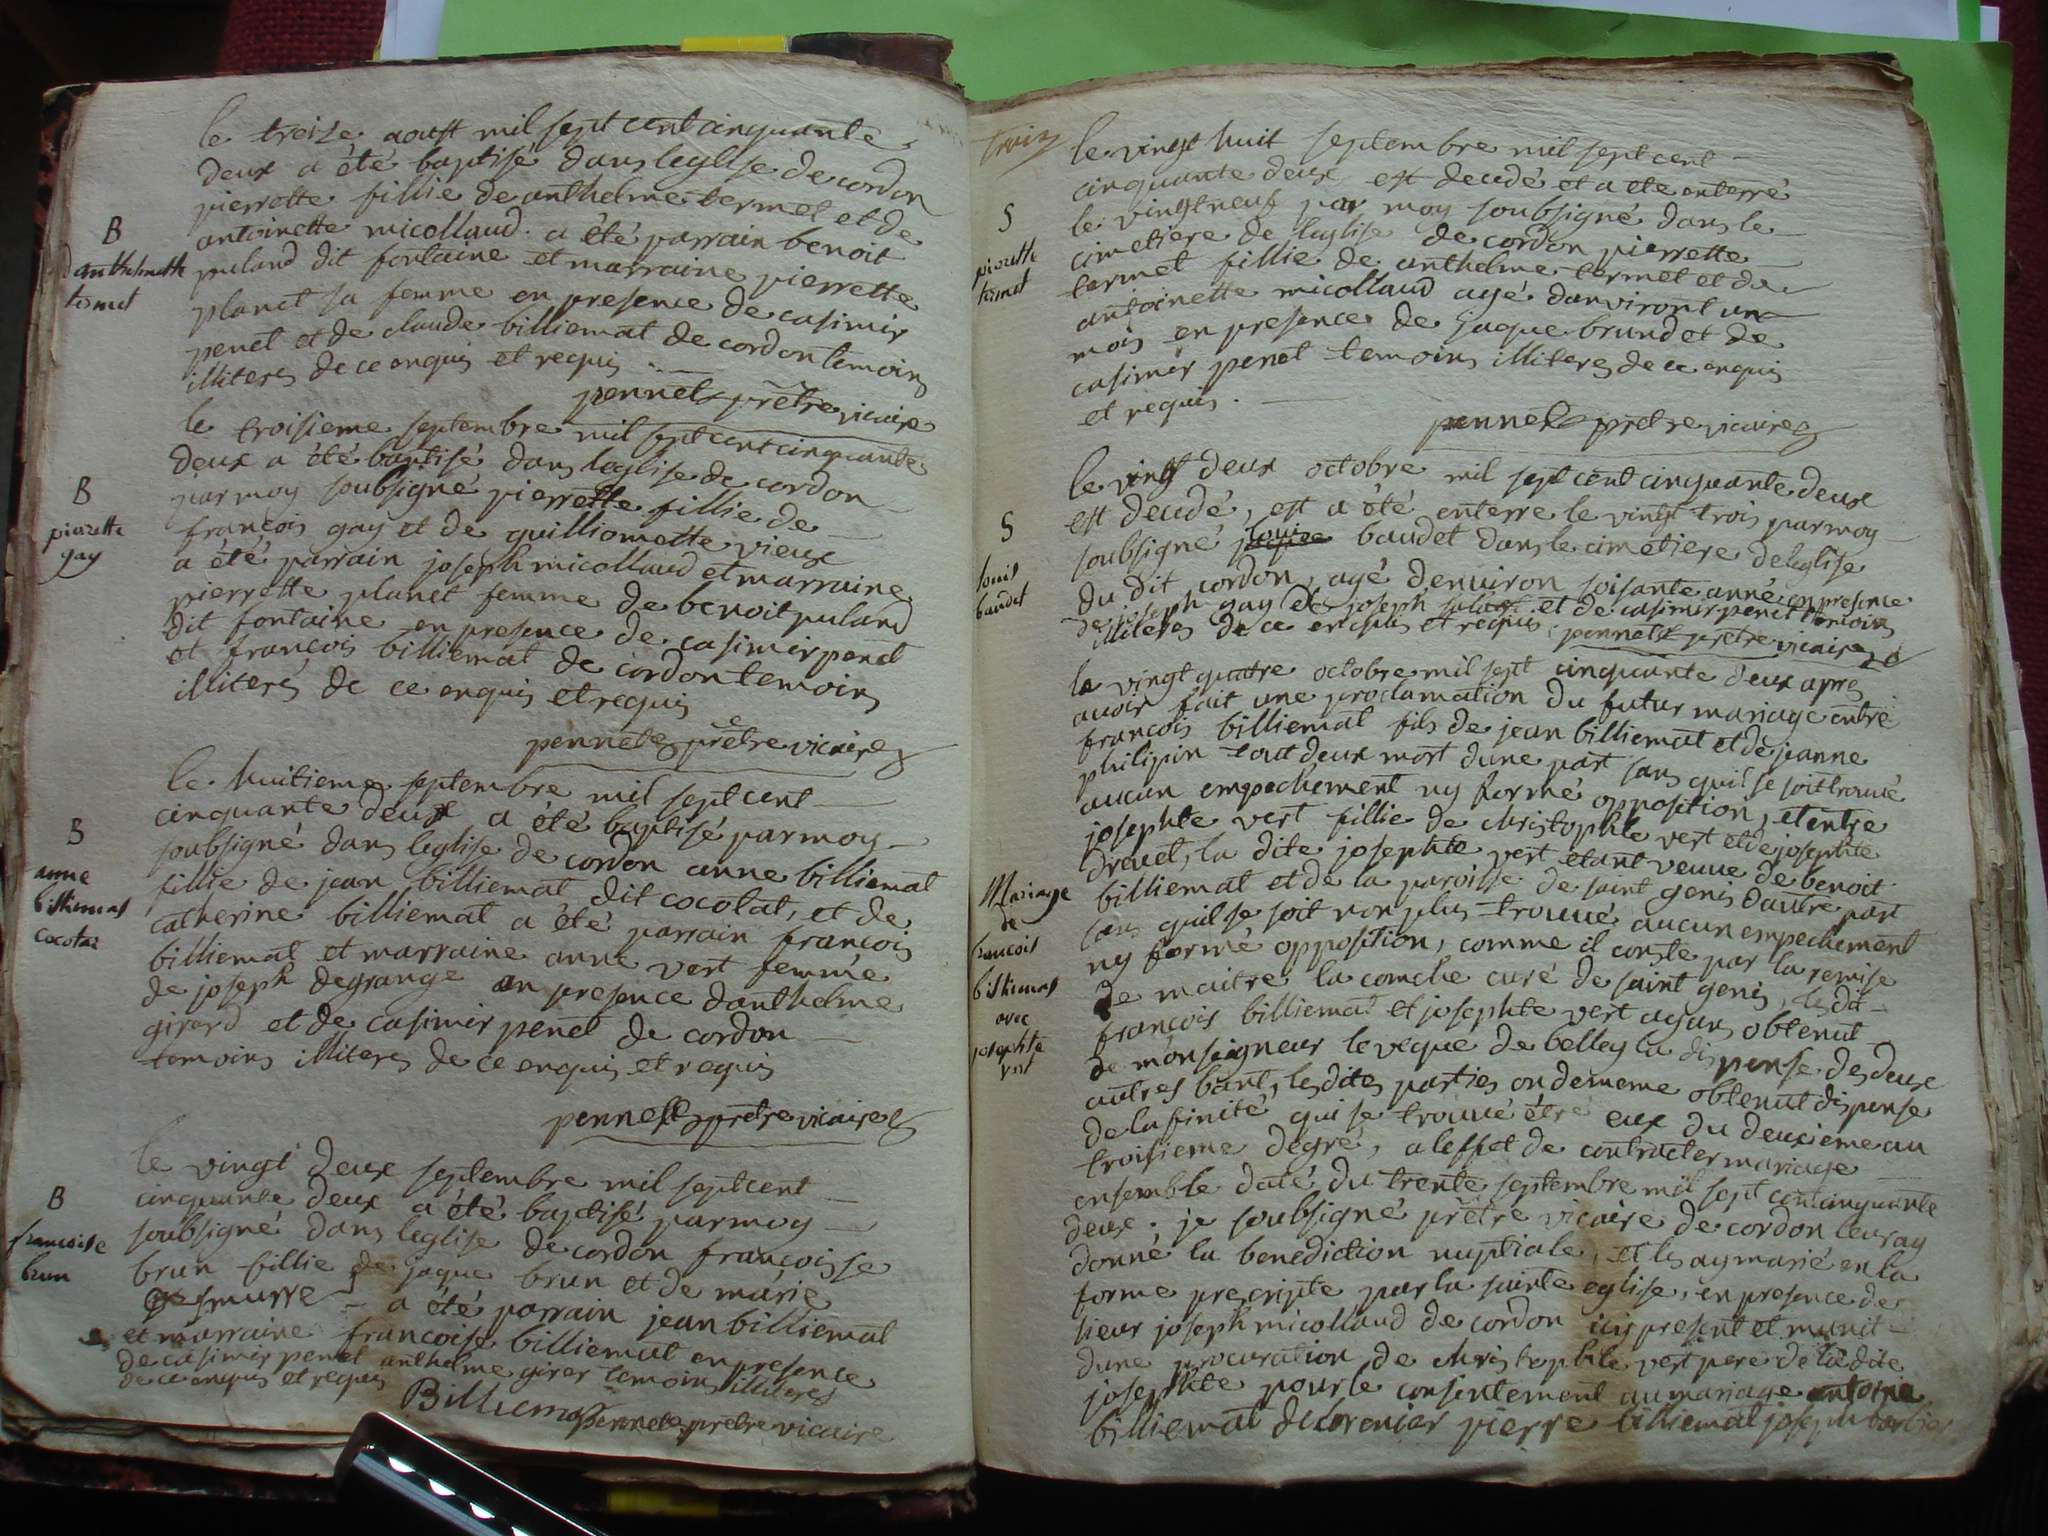 le treize aoust mil sept cent cinquante
deux a été baptisé dans leglise de cordon
pierrette fillie de anthelme termet et de
antoinette micollaud a été parrain benoit
B
danthelmette
termet
puland dit fontaine et marraine pierrette
planet sa femme en presence de casimir
penet et de claude billiemat de cordon temoins
illiteres de ce enquis et requis
pennet prêtre vicaire
le troisieme septembre mil sept cent cinquante
deux a été baptisé dans leglise de cordon
B
pierrette
gay
par moy soubsigné pierrette fillie de
francois gay et de guilliomette vieux
a été parrain joseph micollaud et marraine
pierrette planet femme de benoit puland
dit fontaine en presence de casimir penet
et francois billiemat de cordon temoins
illiterés de ce enquis et requis
pennet prêtre vicaire
le huitieme septembre mil sept cent
cinquante deux a été baptisé par moy
B
anne
billiemat
cocotat
soubsigné dans leglise de cordon anne billiemat
fillie de jean billiemat dit cocotat, et de
catherine billiemat a été parrain francois
billiemat et marraine anne vert femme
de joseph degrange en presence danthelme
girerd et de casimir penet de cordon
temoins illiteres de ce enquis et requis
pennet prêtre vicaire
le vingt deux septembre mil sept cent
cinquante deux a été baptisé par moy
B
francoise
brun
soubsigné dans leglise de cordon françoisse
brun fillie de jaque brun et de marie
a été parrain jean billiemat
et marraine francoise billiemat en presence
de casimir penet anthelme girer temoins illiteres
de ce enquis et requis
Billiemat
pennet prêtre vicaire
trois
le vingt huit septembre mil sept cent
cinquante deux est decedé et a ete enterré
S
pierette
termet
le vingt neuf par moy soubsigné dans le
cimetiere de leglise de cordon pierrette
termet fillie de anthelme termet et de
antoinette micollaud agé danviront un
mois en presence de jaque brund et de
casimir penet temoins illiteres de ce enquis
et requis.
pennet prêtre vicaire
le vingt deux octobre mil sept cent cinquante deux
est decedé, est a été enterre le vingt trois par moy
S
louis
baudet
soubsigné louise baudet dans le cimetiere de leglise
du dit cordon, agé denviron soisante anné en presence
de joseph gay et de casimir penet temoins
illiteres de ce enquis et requis pennet prêtre vicaire
le vingt quatre octobre mil sept cinquante deux apres
avoir fait une proclamation du futur mariage entre
francois billiemat fils de jean billiemat et de jeanne
philipin tout deux mort dune part sans quil se soit trouvé
aucun empechement ny formé opposition, et entre
josephte vert fillie de christophle vert et de josephte
drevet, la dite josephte vert etant veuve de benoit
Mariage
de
francois
billiemat
avec
josephte
vert
billiemat et de la paroisse de saint genis dautre part
sans quil se soit non plus trouvé aucun empechement
ny formé opposition, comme il conste par la remise
de maitre la comche curé de saint genis, les dit
françois billiemat et josephte vert ayans obtenut
de monseigneur leveque de belley la dispense des deux
autres bant, les dites parties on dememe obtenut dispense
de lafinité qui se trouve être eux du deuxieme au
troisieme degré, a leffet de contracter mariage
ensemble daté du trente septembre mil sept cent cinquante
deux. je soubsigné prêtre vicaire de cordon leur ay
donné la benediction nuptiale, et les ay marié en la
forme prescripte par la sainte eglise, en presence de
sieur joseph micollaud de cordon icy present et munit
dune procuration de christophle vert pere de la dite
josephte pour le consentement au mariage antoine
billiemat pierre billiemat joseph barbier